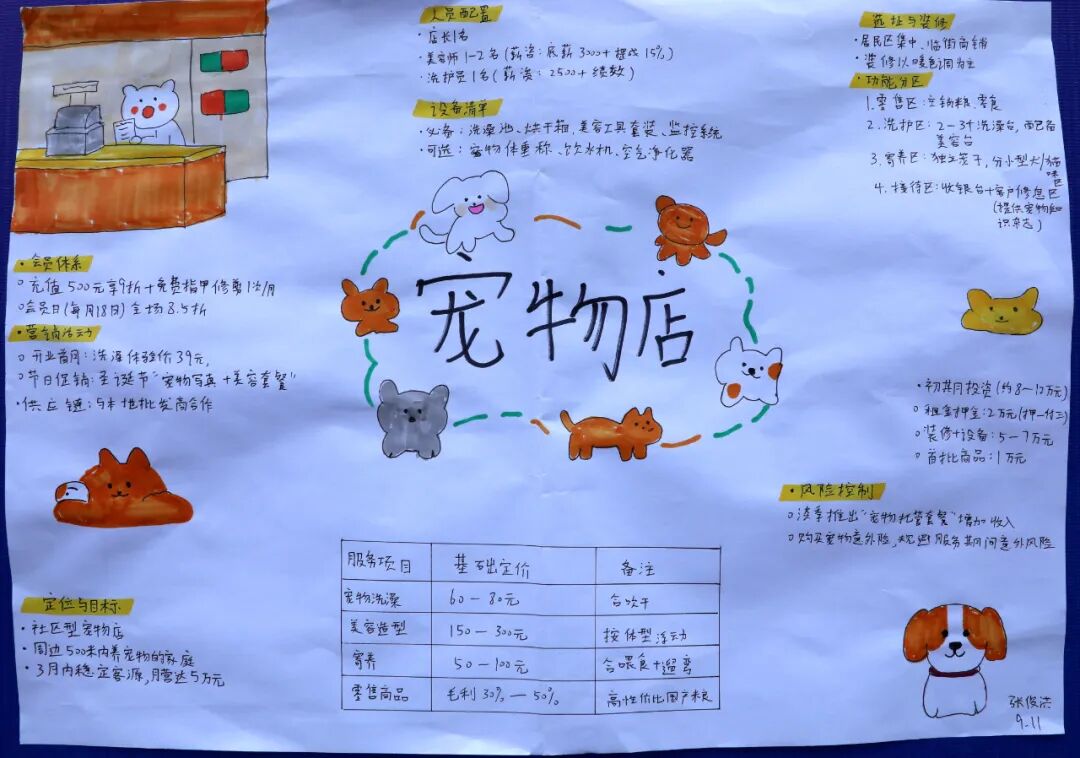 人员配置
·店长1名
·美容师1-2名(薪资:底薪3000+提成15%)
·洗护员1名(薪资:2500+绩效)
设备清单
·必备:洗澡池、烘干箱,美容工具套装、监控系统
·可选:宠物体重称、饮水机、空气净化器
选址与装修
·居民区集中、临街商铺
·装修以暖色调为主
·功能分区
1.零售区:宠物粮、零食
2.洗护区:2-3个洗澡台,配备
美容台
3.寄养区:独立笼子,分小型犬/猫
咪区
4.接待区:收银台+客户休息区
(提供宠物知
识杂志)
·会员体系
○充值500元享9折+免费指甲修剪1次/月
○会员日(每月18日)全场8.5折
·营销活动
○开业首周:洗澡体验价39元,
○节日促销:圣诞节"宠物写真+美容套餐"
·供应链:与本地批发商合作
宠物店
·初期投资(约8-12万元)
○租金押金:2万元(押一付三)
○装修+设备:5-7万元
○首批商品:1万元
·风险控制
○淡季推出"宠物托管套餐"增加收入
○购买宠物意外险,规避服务期间意外风险
定位与目标
·社区型宠物店
·周边500米内养宠物的家庭
·3月内稳定客源,月营达5万元
服务项目 基础定价 备注
宠物洗澡 60-80元 含吹干
美容造型 150-300元 按体型浮动
寄养 50-100元 含喂食+遛弯
零售商品 毛利30%-50% 高性价比国产粮
张俊洪
9.11